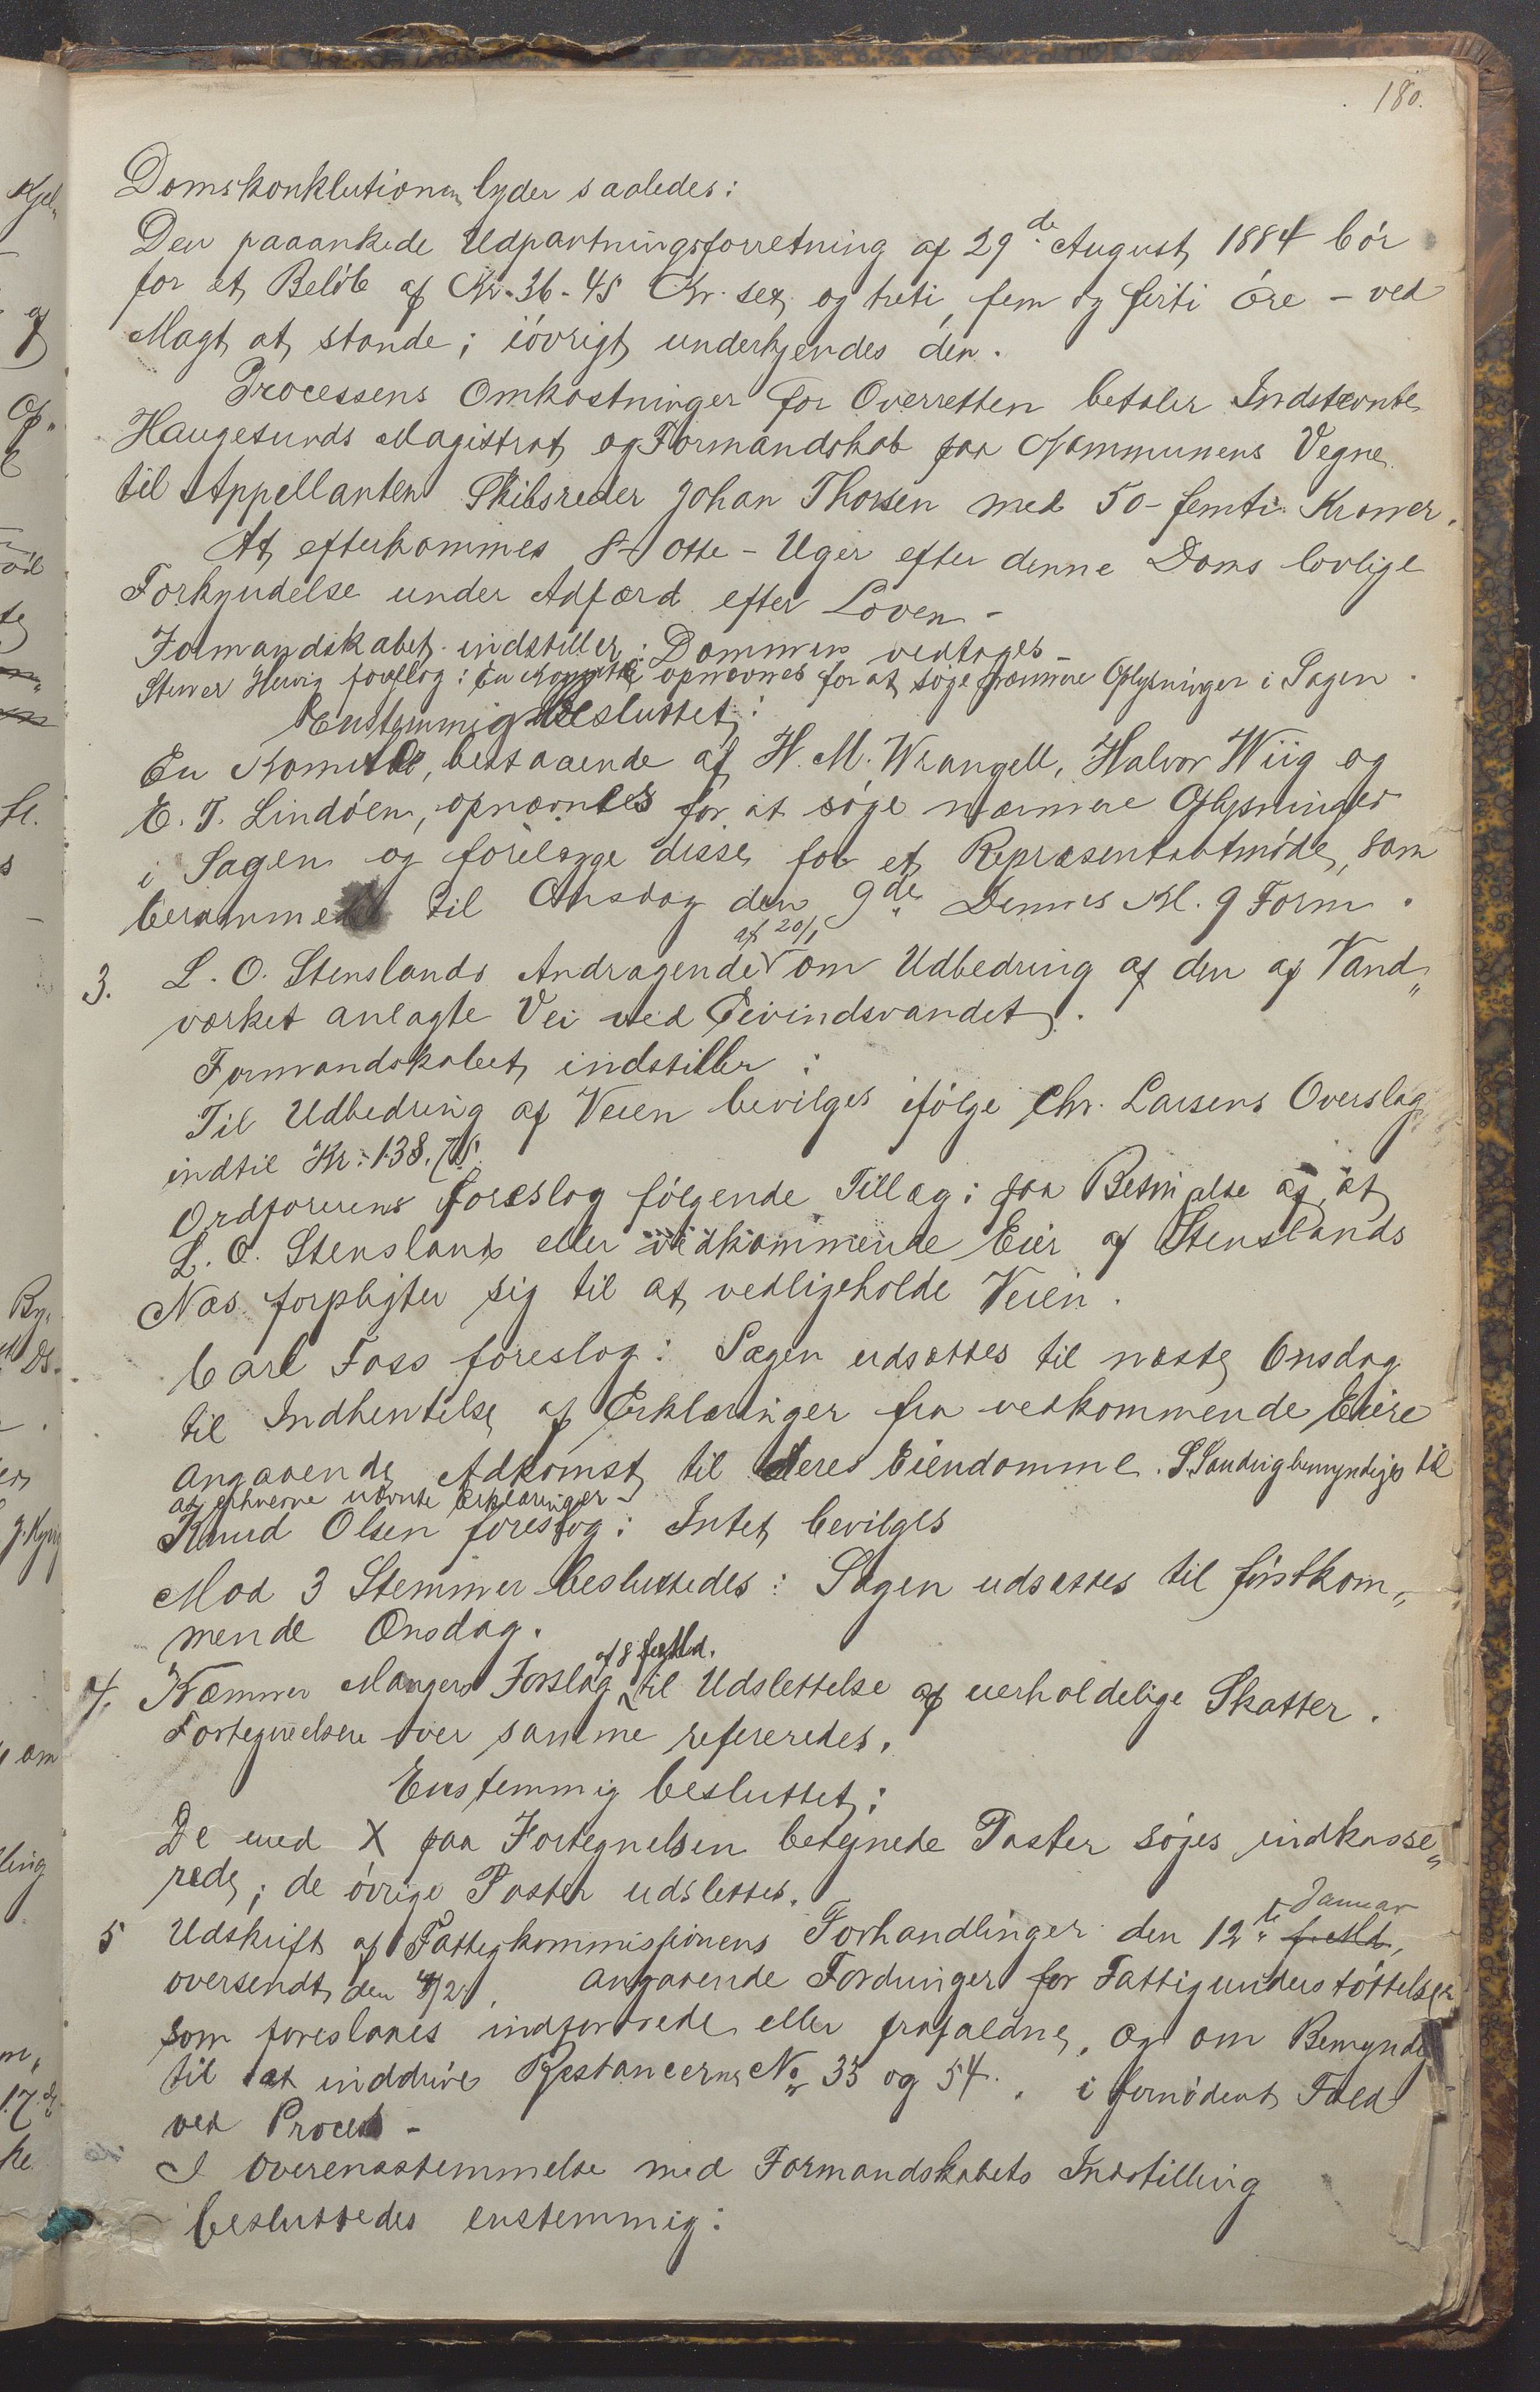 180.
Domskonklutionen lyder saaledes:
Den paaankede Udpantningsforretning af 29de August 1884 bör
for et Belöb af Kr. 36-45 Kr. sex og treti, fem og firti Öre - ved
Magt at stande; iövrigt underkjendes den.
Processens Omkostninger for Overretten betaler Indstevnte
Haugesunds Magistrat og Formandskab paa Kommunens Vegne
til Appellanten Skibsreder Johan Thorsen med 50 - femti Kroner.
At efterkommes 8 - otte - Uger efter denne Doms lovlige
Forkyndelse under Adfærd efter Loven -
Formandskabet indstiller: Dommen vedtages -
foreslog: En Komite opnævnes for at söge nærmere Oplysninger i Sagen.
Enstemmig besluttet:
En Komite, bestaaende af H. M. Wrangell, Halvor Wiig og
E. T. Lindöen, opnævntes for at söge nærmere Oplysninger
i Sagen og forelægge disse for et Repræsentantmöde, som
berammet til Onsdag den 9de Dennes Kl. 9 Form.
3. L. O. Stenslands Andragende af 20/1 om Udbedring af den af Vand„
værket anlagte Vei ved Eivindsvandet.
Formandskabet indstiller:
Til Udbedring af Veien bevilges ifölge Chr. Larsens Overslag
indtil Kr. 138.75.
Ordföreren foreslog fölgende Tillæg: paa Betingelse af, at
L. O. Stensland eller vedkommende Eier af Stenslands
Næs forpligter sig til at vedligeholde Veien.
Carl Foss foreslog: Sagen udsættes til næste Onsdag
til Indhentelse af Erklæringer fra vedkommende Eiere
angaaende Adkomst til deres Eiendomme. S. Sandvig bemyndiges til
at erhverve nævnte Erklæringer -
Knud Olsen foreslog: Intet bevilges
Mod 3 Stemmer besluttedes: Sagen udsættes til förstkom„
mende Onsdag.
4. Kæmner Mangers Forslag af 8 til Udslettelse af uerholdelige Skatter.
Fortegnelsen over samme refereredes.
Enstemmig besluttet:
De med X paa Fortegnelsen betegnede Poster söges indkasse„
rede; de övrige Poster udslettes.
5 Udskrift af Fattigkommissionens Forhandlinger den 12te f. Md. Januar,
oversendt den 4/2, angaaende Fordringer for Fattigunderstöttelser
som foreslaaes indfordrede eller frafaldne, og om Bemynd
til at inddrive Restancerne No 33 og 54, i fornödent Fald
ved Proces -
I Overensstemmelse med Formandskabets Indstilling
besluttedes enstemmig: